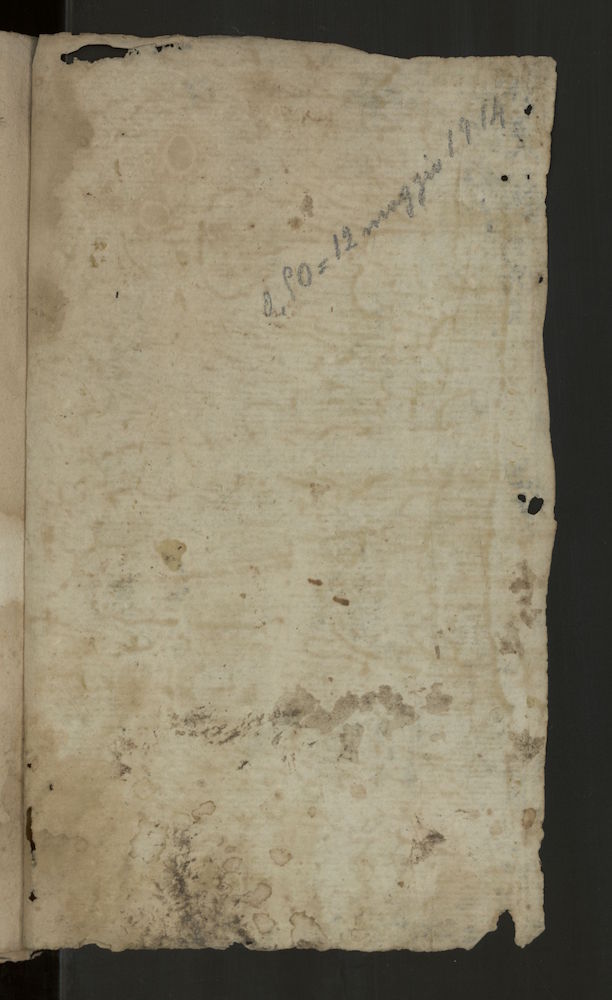 0,50 = 12 maggio 1914